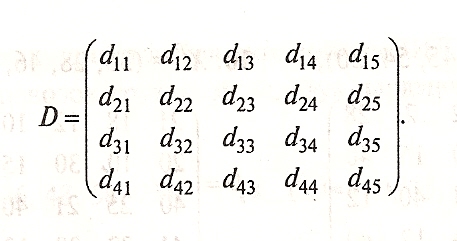 d₁₁ d₁₂ d₁₃ d₁₄ d₁₅
d₂₁ d₂₂ d₂₃ d₂₄ d₂₅
D =
d₃₁ d₃₂ d₃₃ d₃₄ d₃₅
d₄₁ d₄₂ d₄₃ d₄₄ d₄₅ .